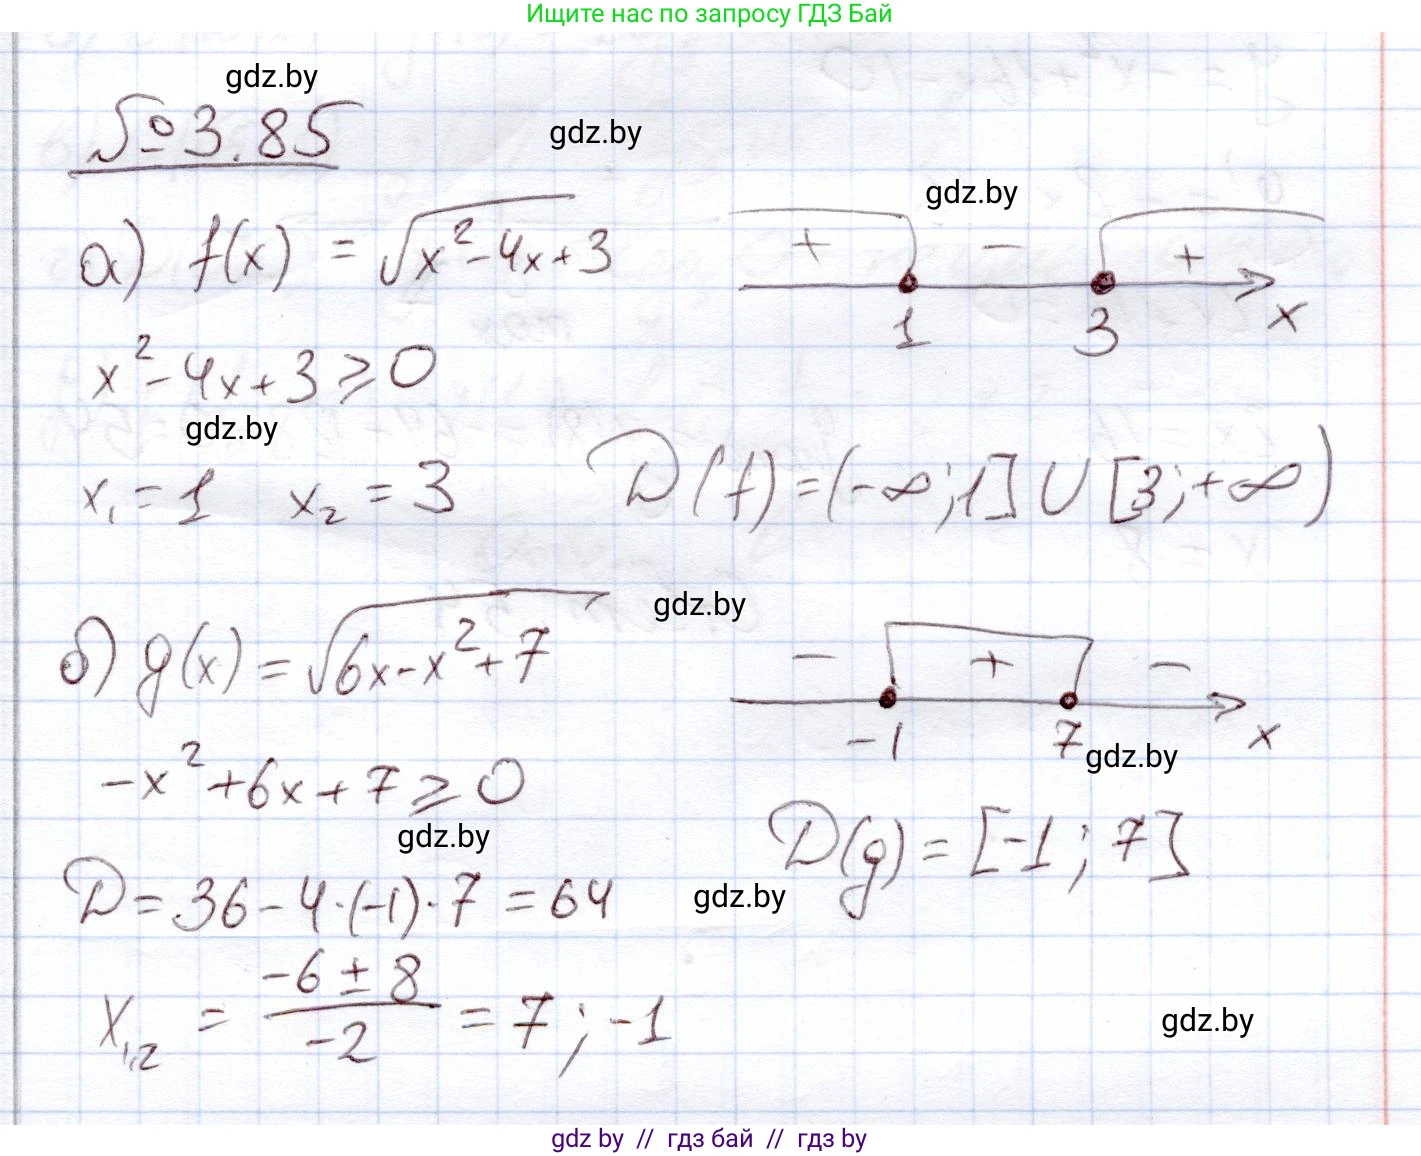 Ищите нас по запросу ГДЗ Бай
gdz.by
№ 3.85
gdz.by
gdz.by
а) f(x) = √(x² - 4x + 3)
+ - +
1 3 x
x² - 4x + 3 ⩾ 0
gdz.by
x₁ = 1 x₂ = 3 D(f) = (-∞; 1] ∪ [3; +∞)
gdz.by
б) g(x) = √(6x - x² + 7)
- + -
-1 7 x
gdz.by
-x² + 6x + 7 ⩾ 0
gdz.by
D(g) = [-1; 7]
D = 36 - 4·(-1)·7 = 64
gdz.by
x₁,₂ = (-6 ± 8)/(-2) = 7; -1
gdz.by
gdz by // гдз бай // гдз by